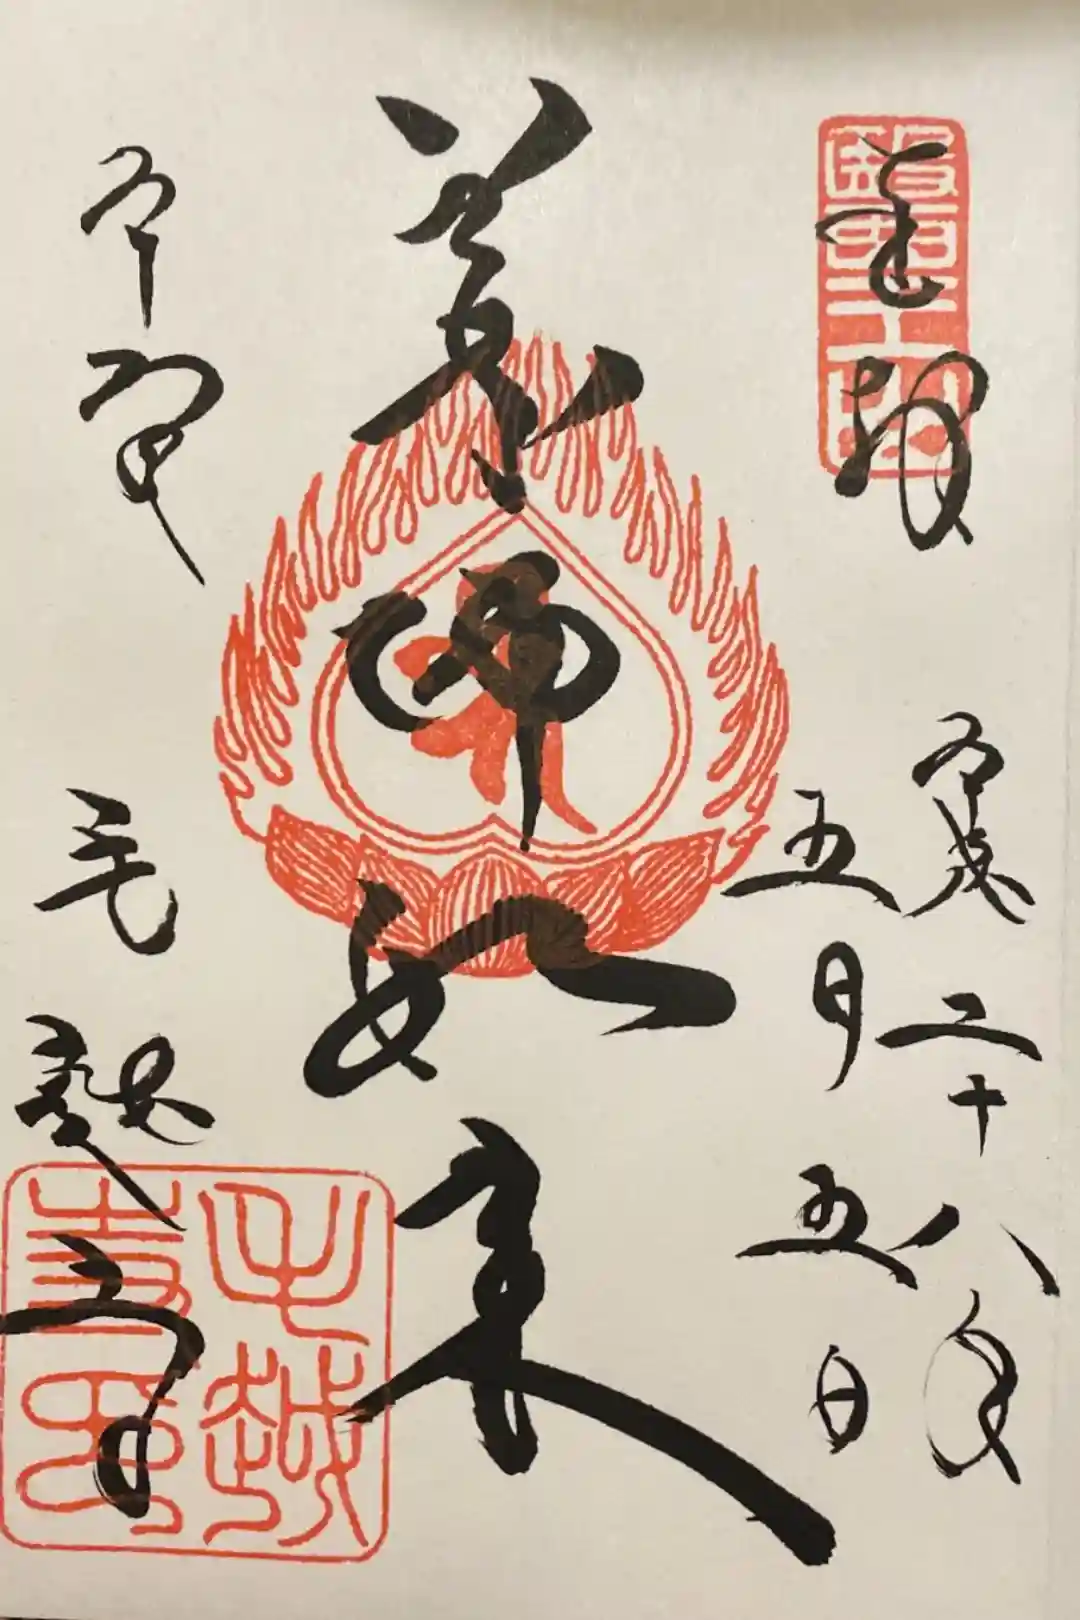 奉拝
平成二十八年
五月五日
薬師如来
平泉
毛越寺
毛越寺印